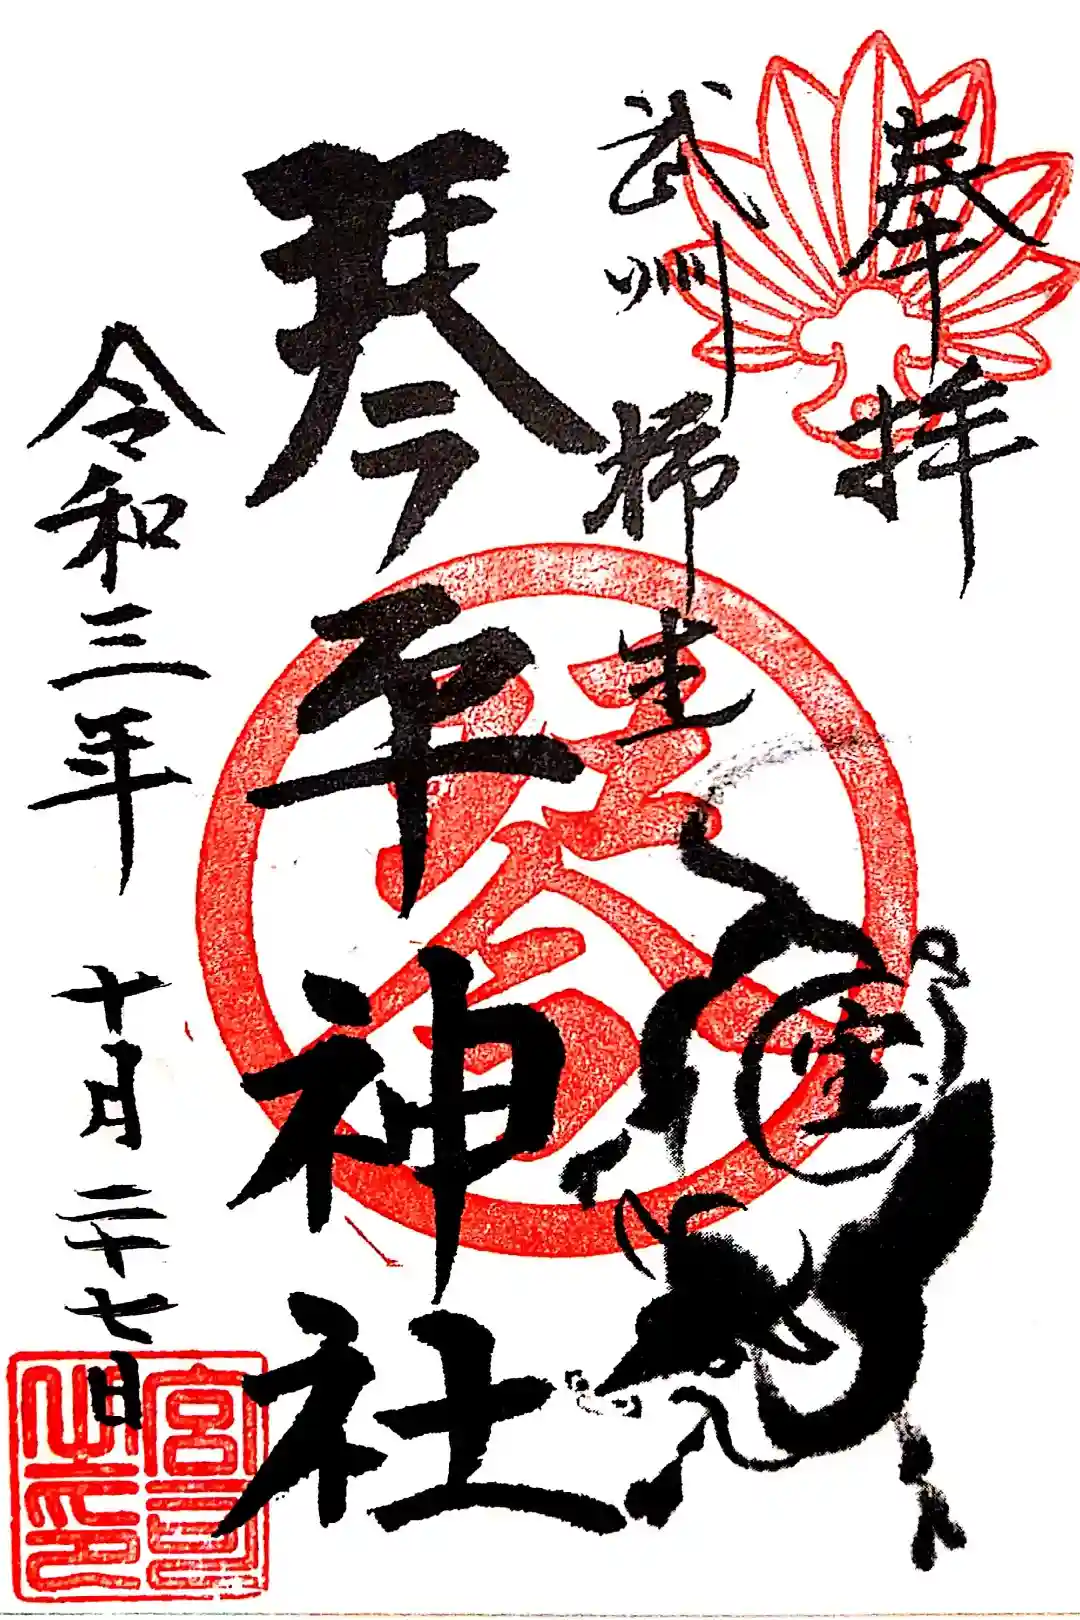 奉拝
武州柿生
琴平神社
令和三年十月二十七日
琴
宮司
之印